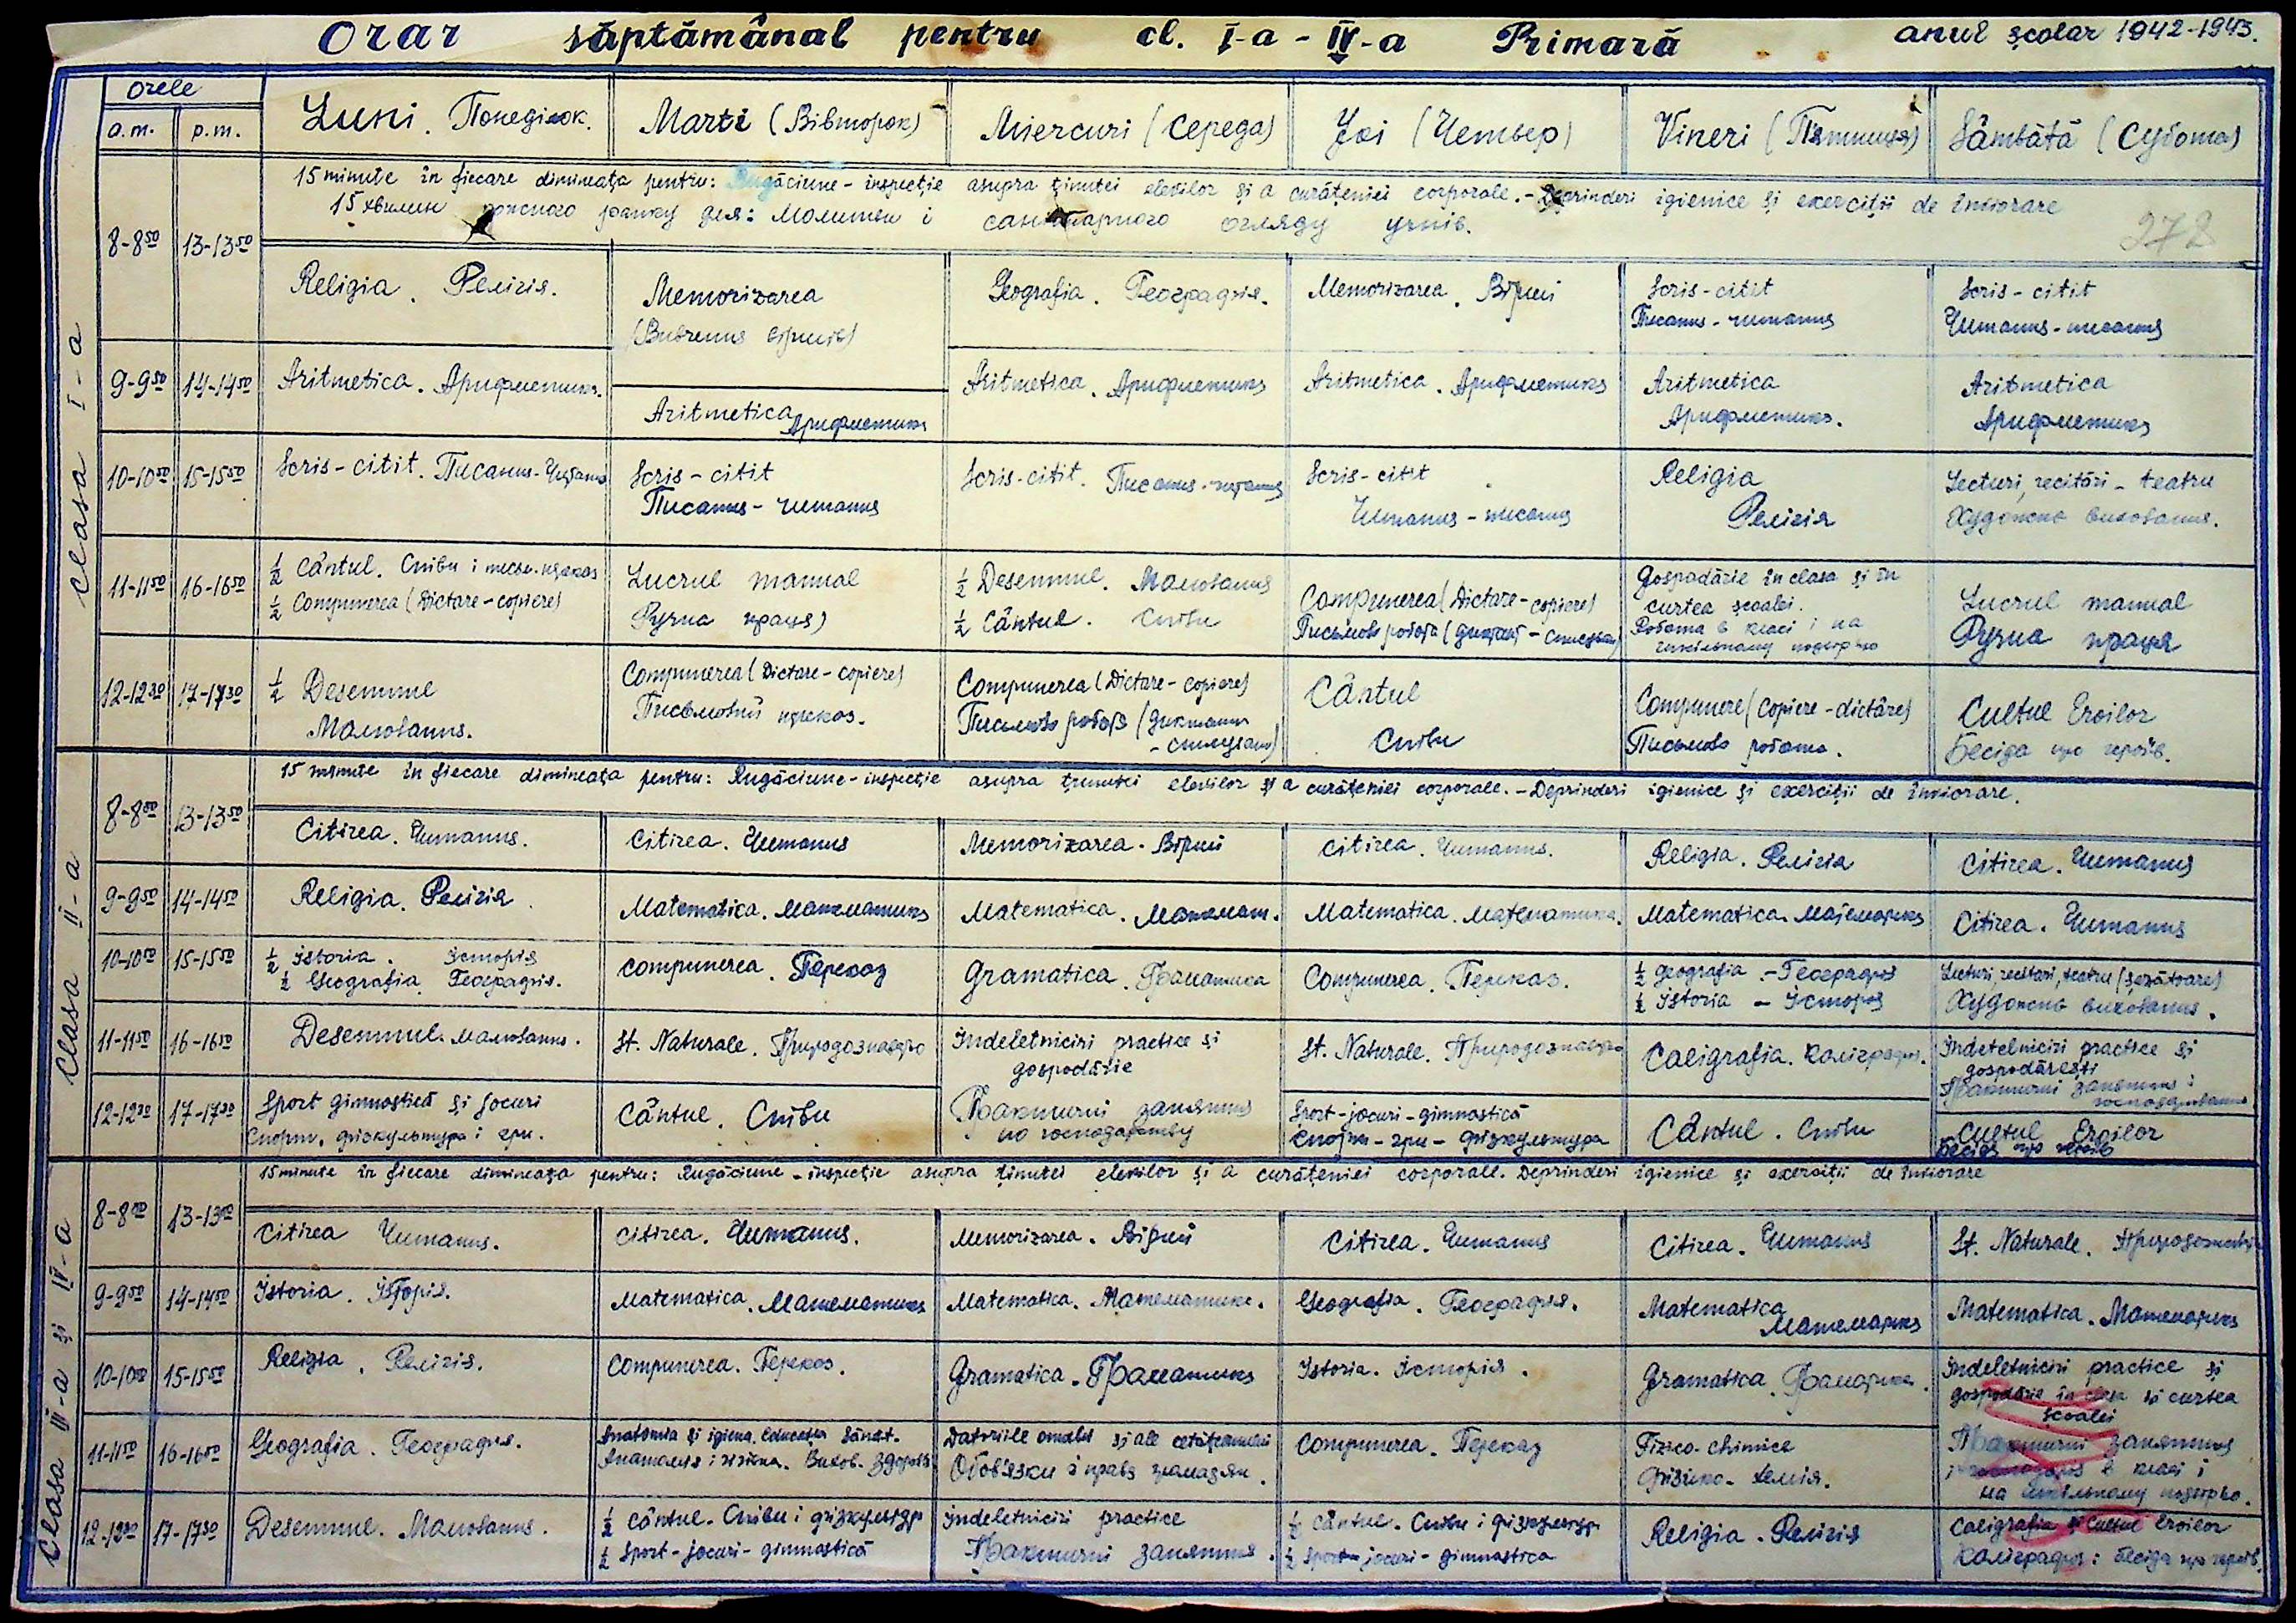 Orar săptămânal pentru cl. I-a - IV-a Primară
anul școlar 1942-1943.
Orele
a.m. p.m.
Luni. Понеділок.
Marti (Вівторок)
Miercuri (Середа)
Joi (Четвер)
Vineri (Пятниця)
Sâmbătă (Субота)
Clasa I-a
15 minute în fiecare dimineața pentru: Rugăciune - inspecție asupra ținutei elevilor și a curățeniei corporale. - Deprinderi igienice și exerciții de înviorare
15 хвилин кожного ранку для: молитви і санітарного огляду учнів.
278
8-8⁵⁰ 13-13⁵⁰
Religia. Релігія.
Memorizarea
(Вивченнє віршів)
Geografia. Географія.
Memorizarea. Вірші
Scris-citit
Писаннє-читаннє
Scris-citit
Читаннє-писаннє
9-9⁵⁰ 14-14⁵⁰
Aritmetica. Арифметика.
Aritmetica Арифметика
Aritmetica. Арифметика
Aritmetica. Арифметика
Aritmetica
Арифметика.
Aritmetica
Арифметика
10-10⁵⁰ 15-15⁵⁰
Scris-citit. Писаннє-Читаннє
Scris-citit
Писаннє-читаннє
Scris-citit. Писаннє-читаннє
Scris-citit
Читаннє-писаннє
Religia
Релігія
Lecturi, recitări - teatru
Художнє вихованнє.
11-11⁵⁰ 16-16⁵⁰
½ Cântul. Співи і письм. переказ
½ Compunerea (Dictare-copiere)
Lucrul manual
Ручна праця)
½ Desemnul. Малюваннє
½ Cântul. Співи
Compunerea (Dictare-copiere)
Письмова робота (диктат-списуван)
Gospodărie în clasa și în
curtea școalei.
Робота в класі і на
шкільному подвіррю
Lucrul manual
Ручна праця
12-12³⁰ 17-17³⁰
½ Desemnul
Малюваннє.
Compunerea (Dictare-copiere)
Письмовий переказ.
Compunerea (Dictare-copiere)
Письмова робота (диктаннє
-списуваннє)
Cântul
Співи
Compunere (Copiere-dictăre)
Письмова робота.
Cultul Eroilor
Бесіда про героїв.
Clasa II-a
15 minute în fiecare dimineața pentru: Rugăciune-inspecție asupra ținutei elevilor și a curățeniei corporale. - Deprinderi igienice și exerciții de înviorare.
8-8⁵⁰ 13-13⁵⁰
Citirea. Читаннє.
Citirea. Читаннє
Memorizarea. Вірші
Citirea. Читаннє.
Religia. Релігія
Citirea. Читаннє
9-9⁵⁰ 14-14⁵⁰
Religia. Релігія
Matematica. Математика
Matematica. Математ.
Matematica. Математика.
Matematica. Математика
Citirea. Читаннє
10-10⁵⁰ 15-15⁵⁰
½ Istoria. Історія
½ Geografia. Географія.
Compunerea. Переказ
Gramatica. Граматика
Compunerea. Переказ.
½ Geografia. - Географія
½ Istoria - Історія
Lecturi, recitari, teatru (șezătoare)
Художнє вихованнє.
11-11⁵⁰ 16-16⁵⁰
Desemnul. Малюваннє.
St. Naturale. Природознавство
Indeletniciri practice și
gospodărie
Практичні заняттє
по господарству
St. Naturale. Природознавство
Caligrafia. Каліграфія.
Indetelniciri practice și
gospodărești
Практичні заняттє і
господарюваннє
12-12³⁰ 17-17³⁰
Sport gimnastică și jocuri
Спорт, фізкультура і гри.
Cântul. Співи
Sport-jocuri-gimnastică
Спорт-гри-фізкультура
Cântul. Співи
Cultul Eroilor
Бесіда про героїв
Clasa III-a și IV-a
15 minute în fiecare dimineața pentru: Rugăciune - inspecție asupra ținutei elevilor și a curățeniei corporale. Deprinderi igienice și exerciții de înviorare
8-8⁵⁰ 13-13⁵⁰
Citirea Читаннє.
Citirea. Читаннє.
Memorizarea. Вірші
Citirea. Читаннє
Citirea. Читаннє
St. Naturale. Природознавство
9-9⁵⁰ 14-14⁵⁰
Istoria. Історія.
Matematica. Математика
Matematica. Математика.
Geografia. Географія.
Matematica
Математика
Matematica. Математика
10-10⁵⁰ 15-15⁵⁰
Religia. Релігія.
Compunerea. Переказ.
Gramatica. Граматика
Istoria. Історія.
Gramatica. Граматика.
Indeletniciri practice și
gospodărie în clasa și curtea
școalei
Практичні заняттє
і господарка в класі і
на шкільному подвіррю.
11-11⁵⁰ 16-16⁵⁰
Geografia. Географія.
Anatomia și igiena. Educația Sănăt.
Анатомія і гігієна. Вихов. Здоровля
Datoriile omului și ale cetățeanului
Обов'язки і права громадян.
Compunerea. Переказ
Fizico-chimice
Фізико-хемія.
12-12³⁰ 17-17³⁰
Desemnul. Малюваннє.
½ Cântul. Співи і фізкультура
½ Sport-jocuri-gimnastică
Indeletniciri practice
Практичні заняттє.
½ Cântul. Співи і фізкультур
½ Sport-jocuri-gimnastica
Religia. Релігія
Caligrafia și Cultul Eroilor
Каліграфія і бесіда про героїв.